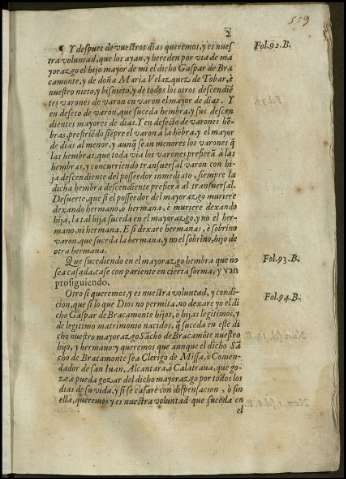 559
2
¶ Y despues de vuestros dias queremos, y es nues
tra voluntad, que los ayan, y hereden por via de ma
yorazgo el hijo mayor de mi el dicho Gaspar de Bra
camonte, y de doña Maria Velazquez de Tobar, è
nuestro nieto, y bisnieto, y de todos los otros descendiē
tes varones de varon en varon el mayor de dias. Y
en defeto de varon, que suceda hembra, y sus descen
dientes mayores de dias. Y en defeto de varones hē-
bras, prefiriēdo siēpre el varon a la hēbra, y el mayor
de dias al menor, y aunq̃ sean menores los varones q̃
las hembras, que toda via los varones prefierā à las
hembras, y concurriendo transuersal varon con hi-
ja descendiente del posseedor inmediato, siempre la
dicha hembra descendiente prefiera al transuersal.
Desuerte, que si el posseedor del mayorazgo muriere
dexando hermano, o hermana, è muriere dexando
hija, la tal hija suceda en el mayorazgo, y no el her-
mano, ni hermana. E si dexare hermana, è sobrino
varon, que suceda la hermana, y no el sobrino, hijo de
otra hermana.
Que sucediendo en el mayorazgo hembra que no
sea casada, case con pariente en cierta forma, y van
prosiguiendo.
Otro si queremos, y es nuestra voluntad, y condi-
cion, que si lo que Dios no permita, no dexare yo el di
cho Gaspar de Bracamonte hijos, ò hijas legitimos, y
de legitimo matrimonio nacidos, q̃ suceda en este di
cho nuestro mayorazgo Sācho de Bracamōte nuestro
hijo, y hermano, y queremos que aunque el dicho Sā
cho de Bracamonte sea Clerigo de Missa, ò Comen-
dador de san Iuan, Alcantara, ò Calatraua, que go-
ze, ò pueda gozar del dicho mayorazgo por todos los
dias de su vida, y si se casare con dispensacion, ò sin
ella, queremos, y es nuestra voluntad que suceda en
el
Fol.92.B.
Fol.93.B.
Fol.94.B.